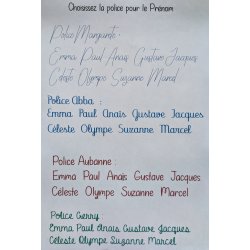 Choisissez la police pour le Prénom
Police Margarite :
Emma Paul Anaïs Gustave Jacques
Céleste Olympe Suzanne Marcel
Police Abba :
Emma Paul Anaïs Gustave Jacques
Céleste Olympe Suzanne Marcel
Police Aubanne :
Emma Paul Anaïs Gustave Jacques
Céleste Olympe Suzanne Marcel
Police Gerry :
Emma Paul Anaïs Gustave Jacques
Céleste Olympe Suzanne Marcel